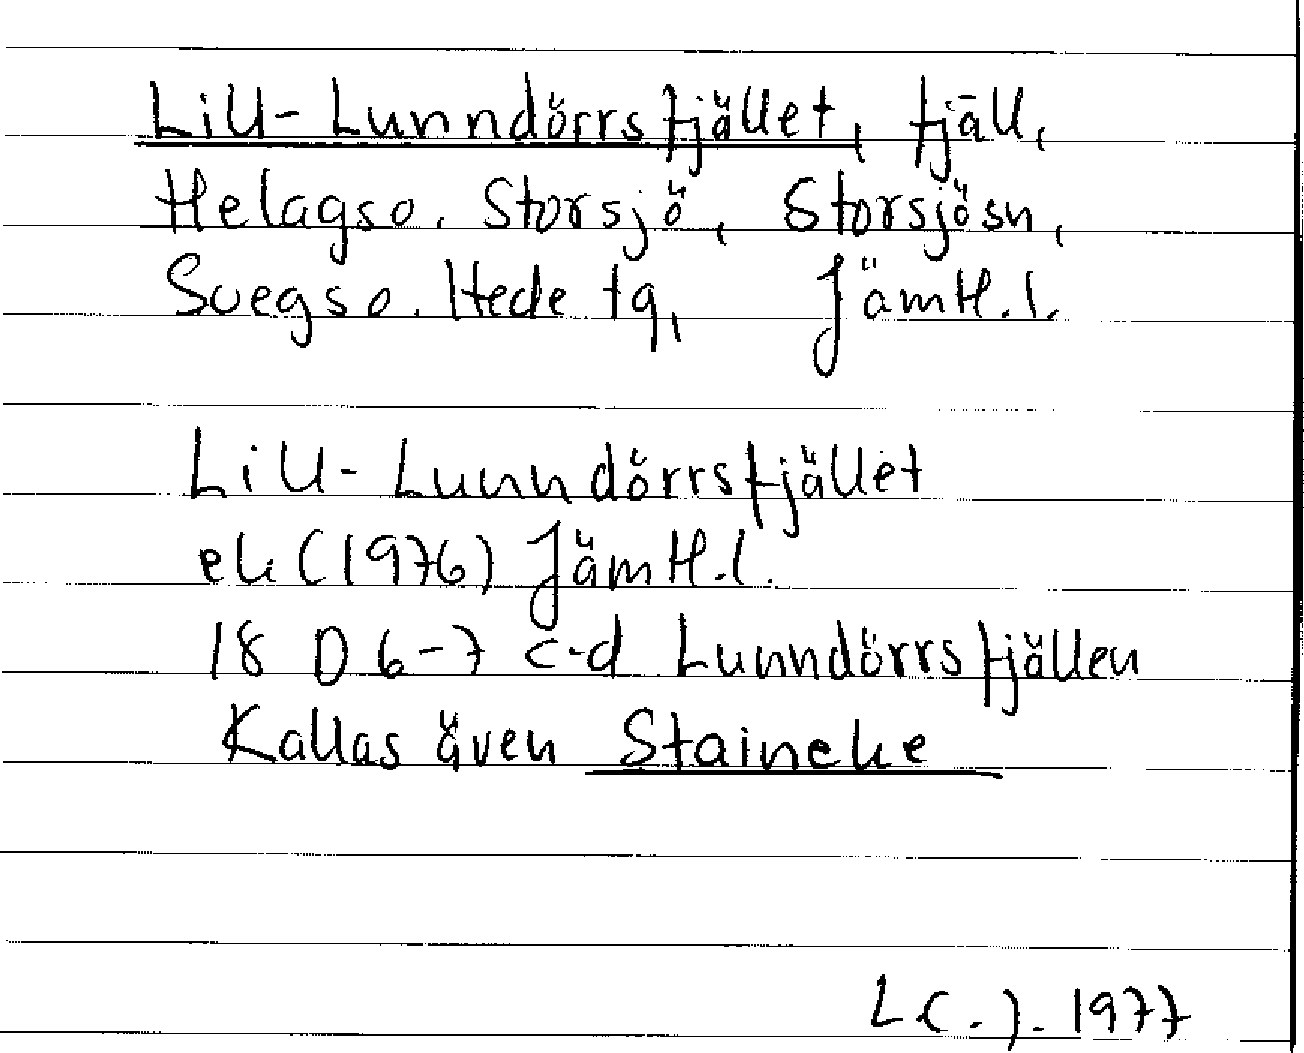 Lill-Lunndörrsfjället, fjäll,
Helagso. Storsjö, Storsjösn,
Svegso. Hede tg, Jämtl.l.
Lill-Lunndörrsfjället
ek (1976) Jämtl.l.
18 D 6-7 c-d Lunndörrsfjällen
Kallas även Staineke
1977